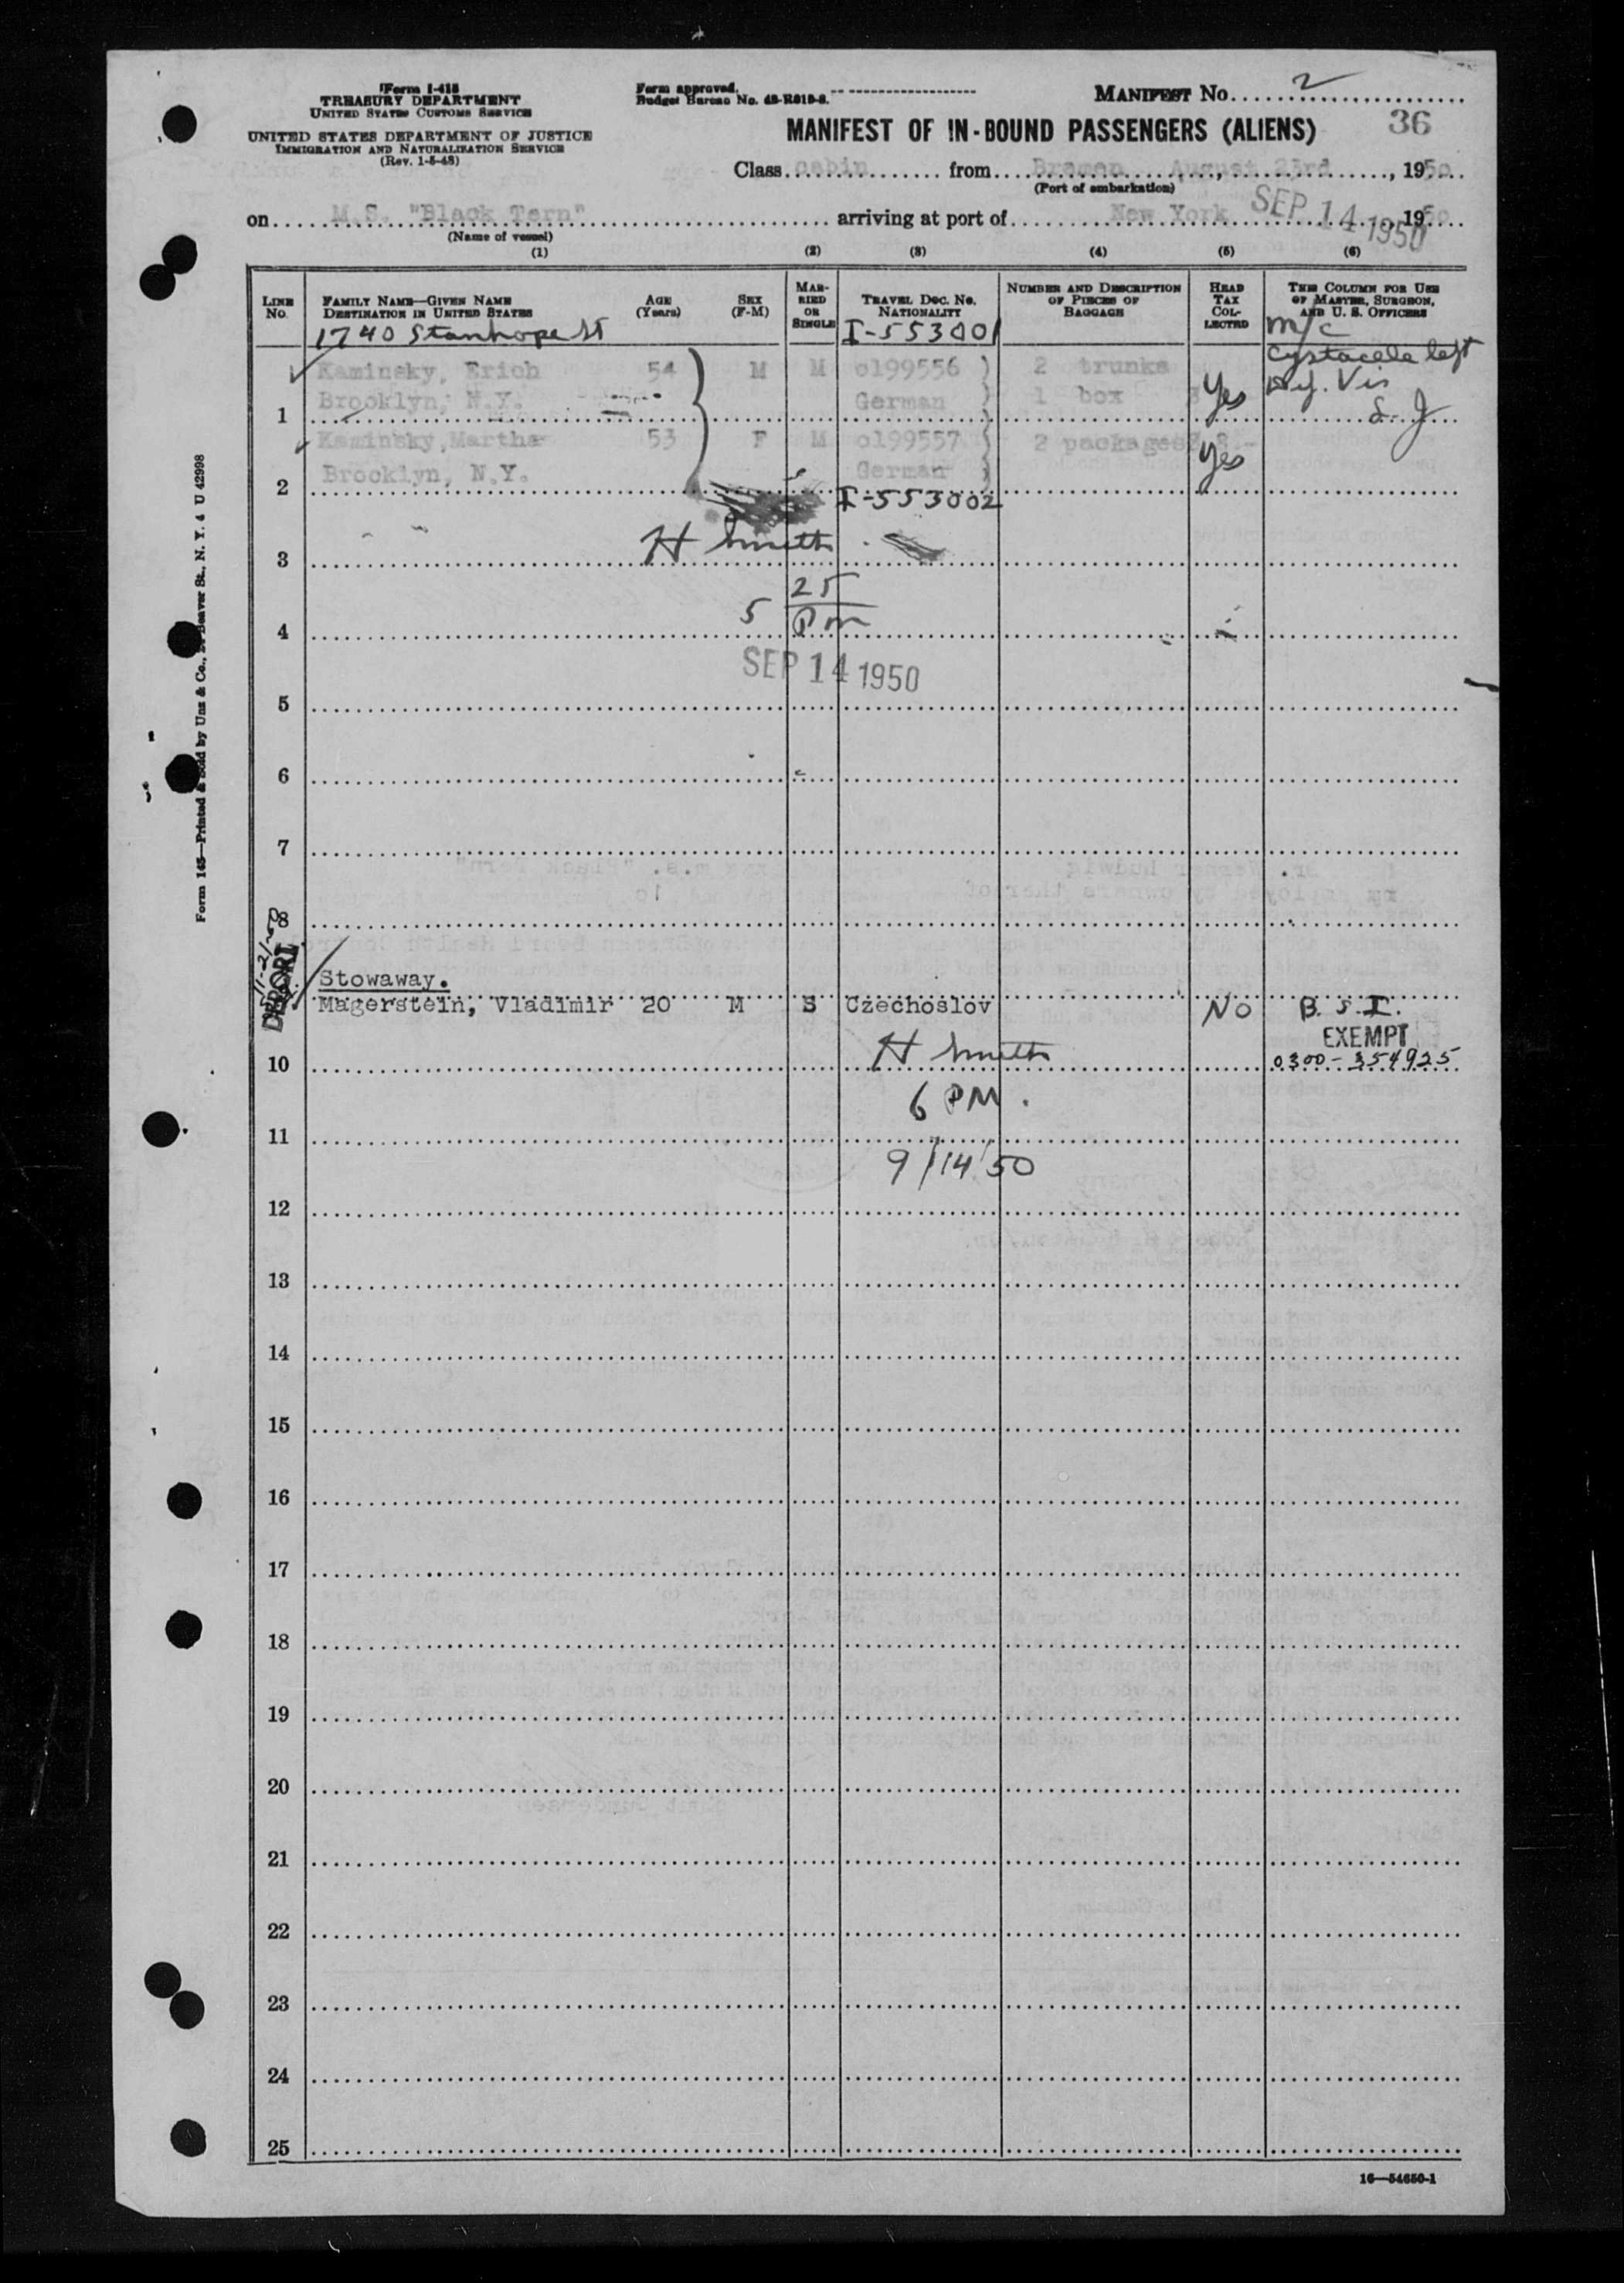 Form I-418
TREASURY DEPARTMENT
UNITED STATES CUSTOMS SERVICE
UNITED STATES DEPARTMENT OF JUSTICE
IMMIGRATION AND NATURALIZATION SERVICE
(Rev. 1-5-48)
Form approved.
Budget Bureau No. 43-R019-2.
MANIFEST No. 2
MANIFEST OF IN-BOUND PASSENGERS (ALIENS) 36
Class cabin from Bremen August 23rd, 1950
(Port of embarkation)
on M.S. "Black Tern" arriving at port of New York SEP 14 1950 1950
(Name of vessel)
(1) (2) (3) (4) (5) (6)
LINE No. FAMILY NAME—GIVEN NAME DESTINATION IN UNITED STATES AGE (Years) SEX (F-M) MARRIED OR SINGLE TRAVEL DOC. NO. NATIONALITY NUMBER AND DESCRIPTION OF PIECES OF BAGGAGE HEAD TAX COLLECTED THIS COLUMN FOR USE OF MASTER, SURGEON, AND U. S. OFFICERS
1740 Stanhope St I-553001 M/c
Kaminsky, Erich 54 M M o199556 2 trunks Cystocele left
1 Brooklyn, N.Y. German 1 box Yes Def. Vis
Kaminsky, Martha 53 F M o199557 2 packages Yes
2 Brooklyn, N.Y. German
I-553002
3 H Smith
4 5 25 Pm
SEP 14 1950
5
6
7
8
DEPORT
Stowaway.
Magerstein, Vladimir 20 M S Czechoslov No B. S. I.
EXEMPT
10 H Smith 0300-354925
6 PM.
11
9/14/50
12
13
14
15
16
17
18
19
20
21
22
23
24
25
16—54650-1
Form 145—Printed & Sold by Unz & Co., Beaver St., N. Y. 4 U 42998